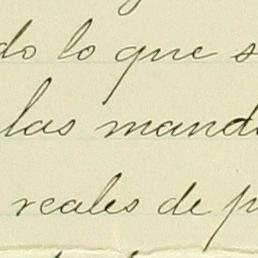 do lo que s
las mand
reales de p